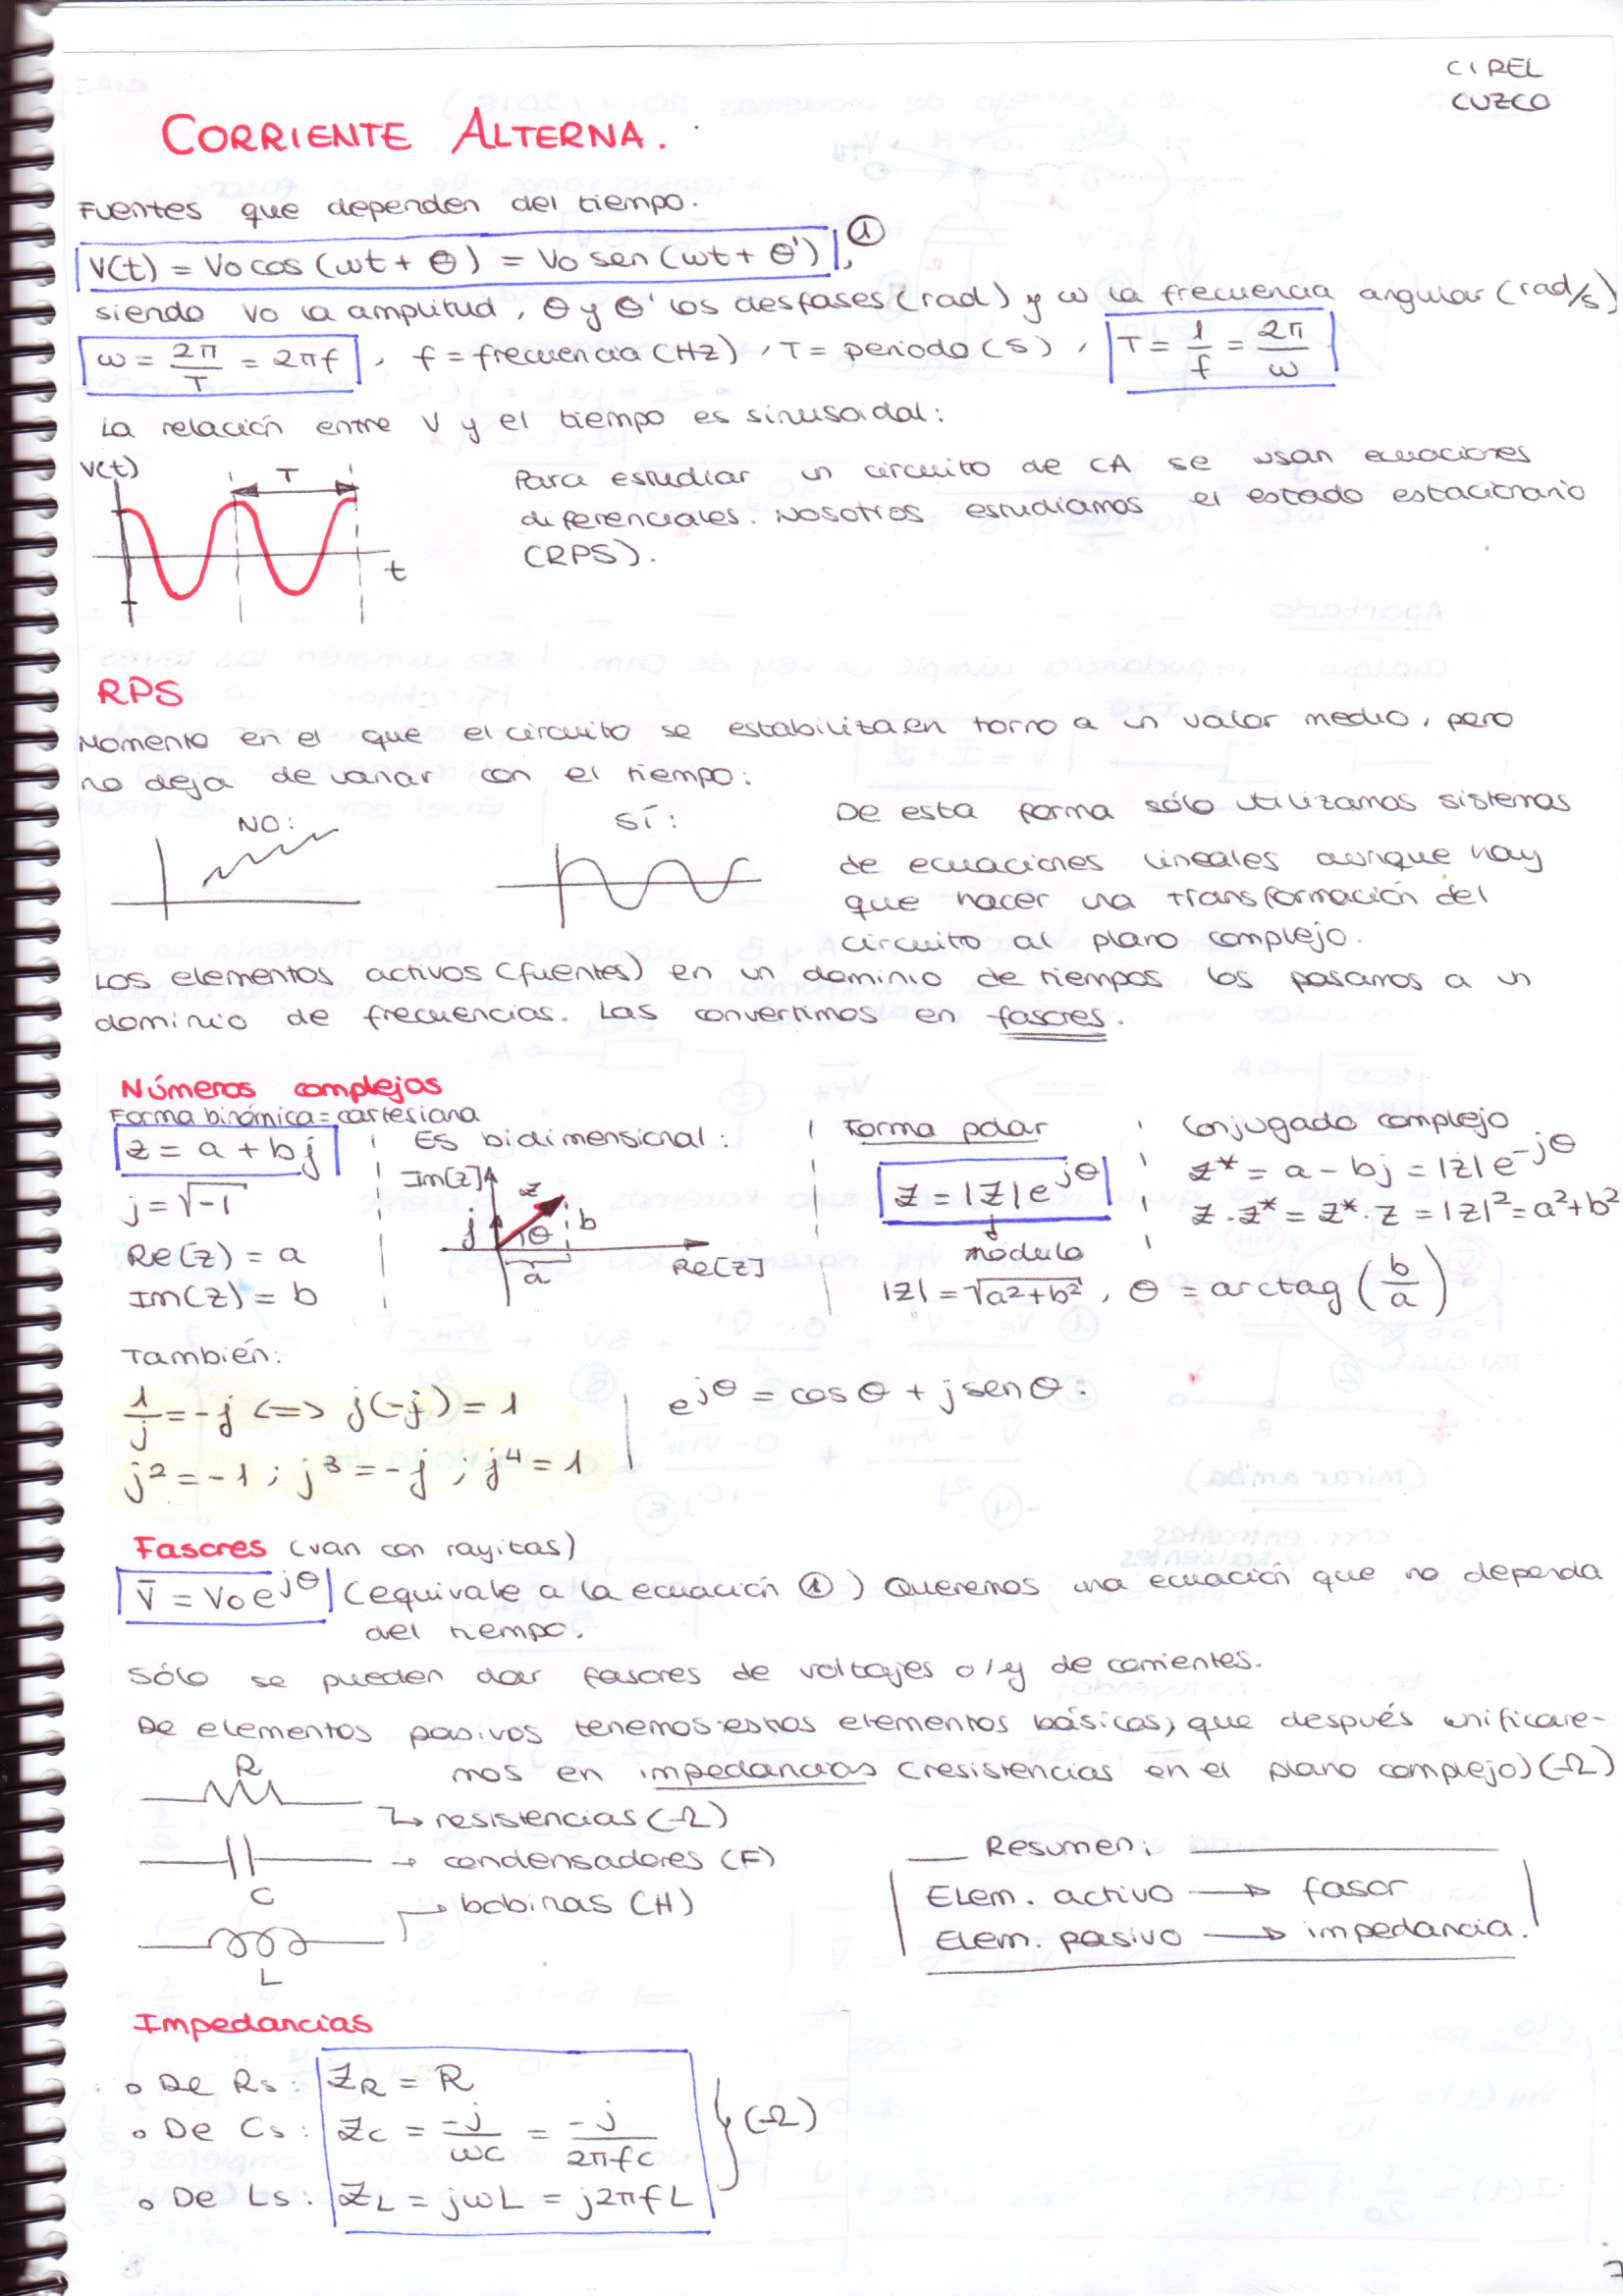 CIREL
CUZCO
CORRIENTE ALTERNA.
Fuentes que dependen del tiempo.
V(t) = Vo cos (ωt + θ) = Vo sen (ωt + θ') , ①
siendo Vo la amplitud, θ y θ' los desfases (rad) y ω la frecuencia angular (rad/s)
ω = 2π/T = 2πf , f = frecuencia (Hz) , T = periodo (s) , T = 1/f = 2π/ω
La relación entre V y el tiempo es sinusoidal:
V(t)
T
t
Para estudiar un circuito de CA se usan ecuaciones
diferenciales. Nosotros estudiamos el estado estacionario
(RPS).
RPS
Momento en el que el circuito se estabiliza en torno a un valor medio, pero
no deja de variar con el tiempo:
NO:
SÍ:
De esta forma sólo utilizamos sistemas
de ecuaciones lineales aunque hay
que hacer una transformación del
circuito al plano complejo.
Los elementos activos (fuentes) en un dominio de tiempos los pasamos a un
dominio de frecuencias. Las convertimos en fasores.
Números complejos
Forma binómica = cartesiana
z = a + bj
j = √-1
Re(z) = a
Im(z) = b
Es bidimensional:
Im[z]
z
j
θ
b
a
Re[z]
Forma polar
z = |z| e^jθ
módulo
|z| = √a²+b² , θ = arctag (b/a)
Conjugado complejo
z* = a - bj = |z| e^-jθ
z · z* = z* · z = |z|² = a² + b²
También:
1/j = -j <=> j(-j) = 1
j² = -1 ; j³ = -j ; j⁴ = 1
e^jθ = cos θ + j sen θ.
Fasores (van con rayitas)
V̄ = Vo e^jθ (equivale a la ecuación ①) Queremos una ecuación que no dependa
del tiempo.
Sólo se pueden dar fasores de voltajes o/y de corrientes.
De elementos pasivos tenemos estos elementos básicos, que después unificare-
mos en impedancias (resistencias en el plano complejo) (Ω)
R
resistencias (Ω)
→ condensadores (F)
C
bobinas (H)
L
Resumen:
Elem. activo → fasor
Elem. pasivo → impedancia.
Impedancias
o De Rs: Z_R = R
o De Cs: Z_C = -j/ωC = -j/2πfC
o De Ls: Z_L = jωL = j2πfL
} (Ω)
7